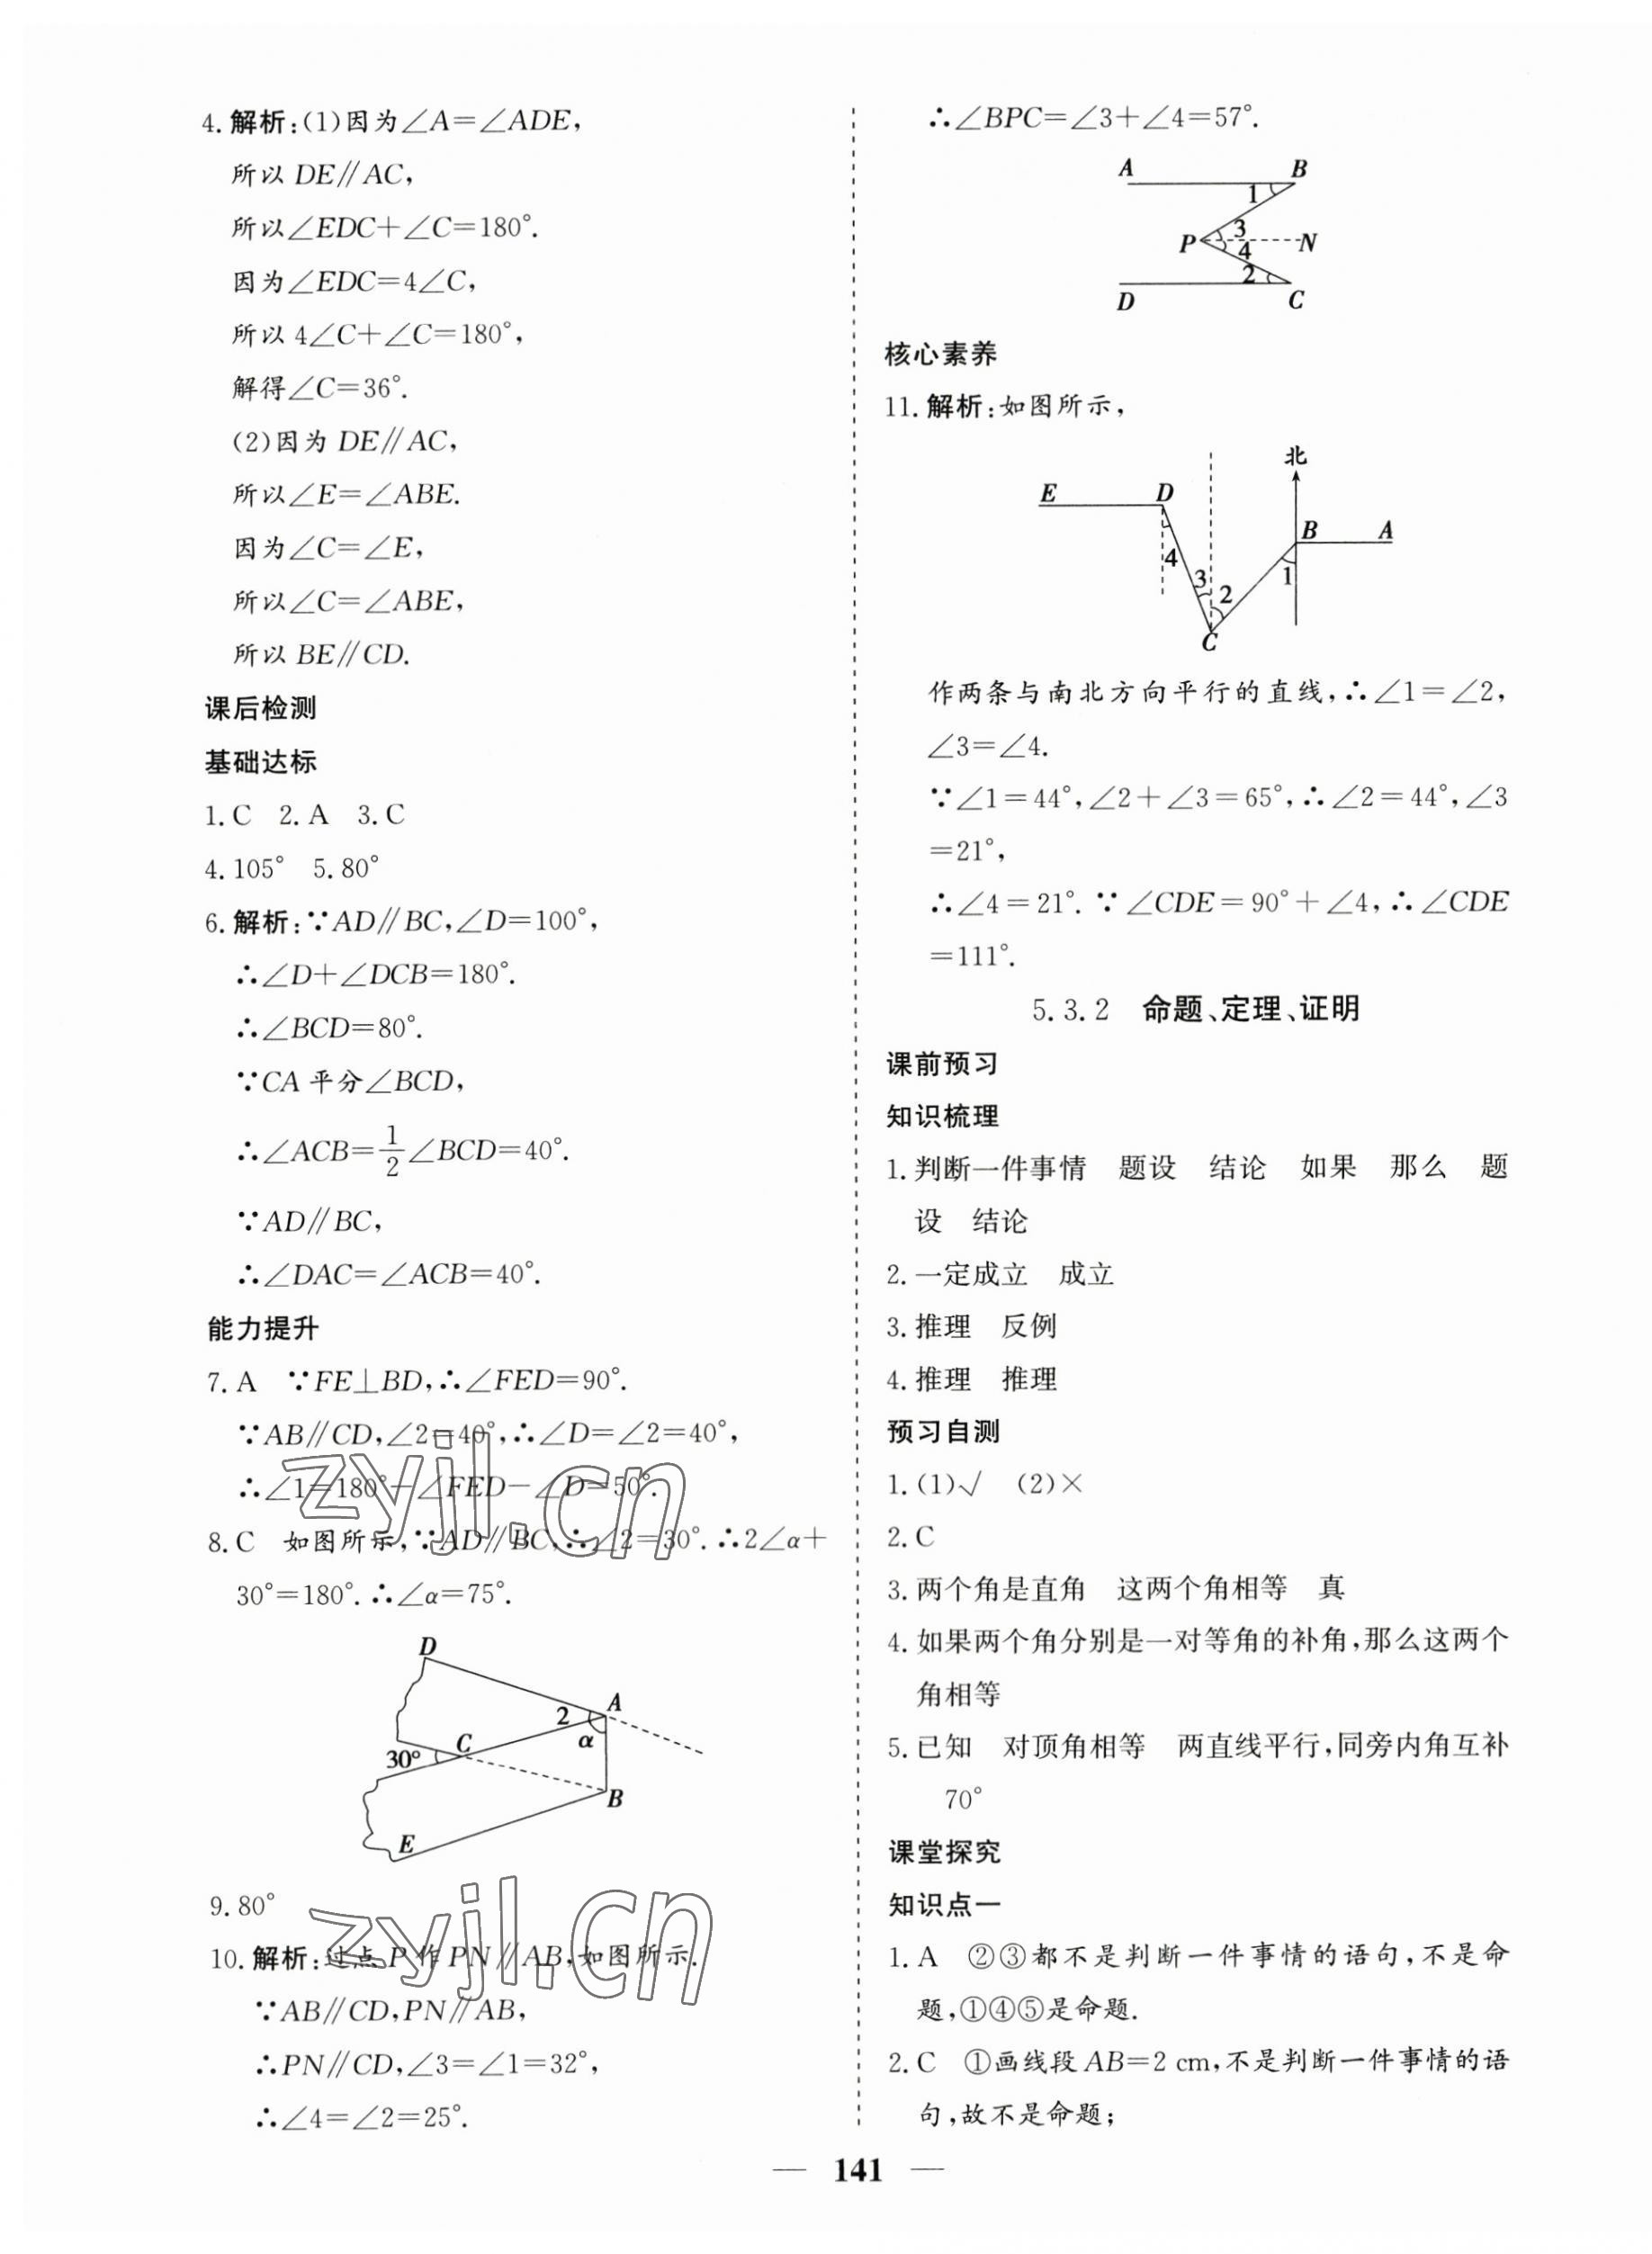 4.解析:(1)因为∠A=∠ADE,
所以 DE∥AC,
所以∠EDC+∠C=180°.
因为∠EDC=4∠C,
所以 4∠C+∠C=180°,
解得∠C=36°.
(2)因为 DE∥AC,
所以∠E=∠ABE.
因为∠C=∠E,
所以∠C=∠ABE,
所以 BE∥CD.
课后检测
基础达标
1.C 2.A 3.C
4.105° 5.80°
6.解析:∵AD∥BC,∠D=100°,
∴∠D+∠DCB=180°.
∴∠BCD=80°.
∵CA 平分∠BCD,
∴∠ACB=1/2∠BCD=40°.
∵AD∥BC,
∴∠DAC=∠ACB=40°.
能力提升
7.A ∵FE⊥BD,∴∠FED=90°.
∵AB∥CD,∠2=40°,∴∠D=∠2=40°,
∴∠1=180°-∠FED-∠D=50°.
8.C 如图所示,∵AD∥BC,∴∠2=30°.∴2∠α+
30°=180°.∴∠α=75°.
D
A
2
α
C
30°
B
E
9.80°
10.解析:过点 P 作 PN∥AB,如图所示.
∵AB∥CD,PN∥AB,
∴PN∥CD,∠3=∠1=32°,
∴∠4=∠2=25°.
∴∠BPC=∠3+∠4=57°.
A B
1
3
P N
4
2
D C
核心素养
11.解析:如图所示,
北
E D
B A
4
3 2 1
C
作两条与南北方向平行的直线,∴∠1=∠2,
∠3=∠4.
∵∠1=44°,∠2+∠3=65°,∴∠2=44°,∠3
=21°,
∴∠4=21°.∵∠CDE=90°+∠4,∴∠CDE
=111°.
5.3.2 命题、定理、证明
课前预习
知识梳理
1.判断一件事情 题设 结论 如果 那么 题
设 结论
2.一定成立 成立
3.推理 反例
4.推理 推理
预习自测
1.(1)√ (2)×
2.C
3.两个角是直角 这两个角相等 真
4.如果两个角分别是一对等角的补角,那么这两个
角相等
5.已知 对顶角相等 两直线平行,同旁内角互补
70°
课堂探究
知识点一
1.A ②③都不是判断一件事情的语句,不是命
题,①④⑤是命题.
2.C ①画线段 AB=2 cm,不是判断一件事情的语
句,故不是命题;
— 141 —
zyjl.cn
zyjl.cn